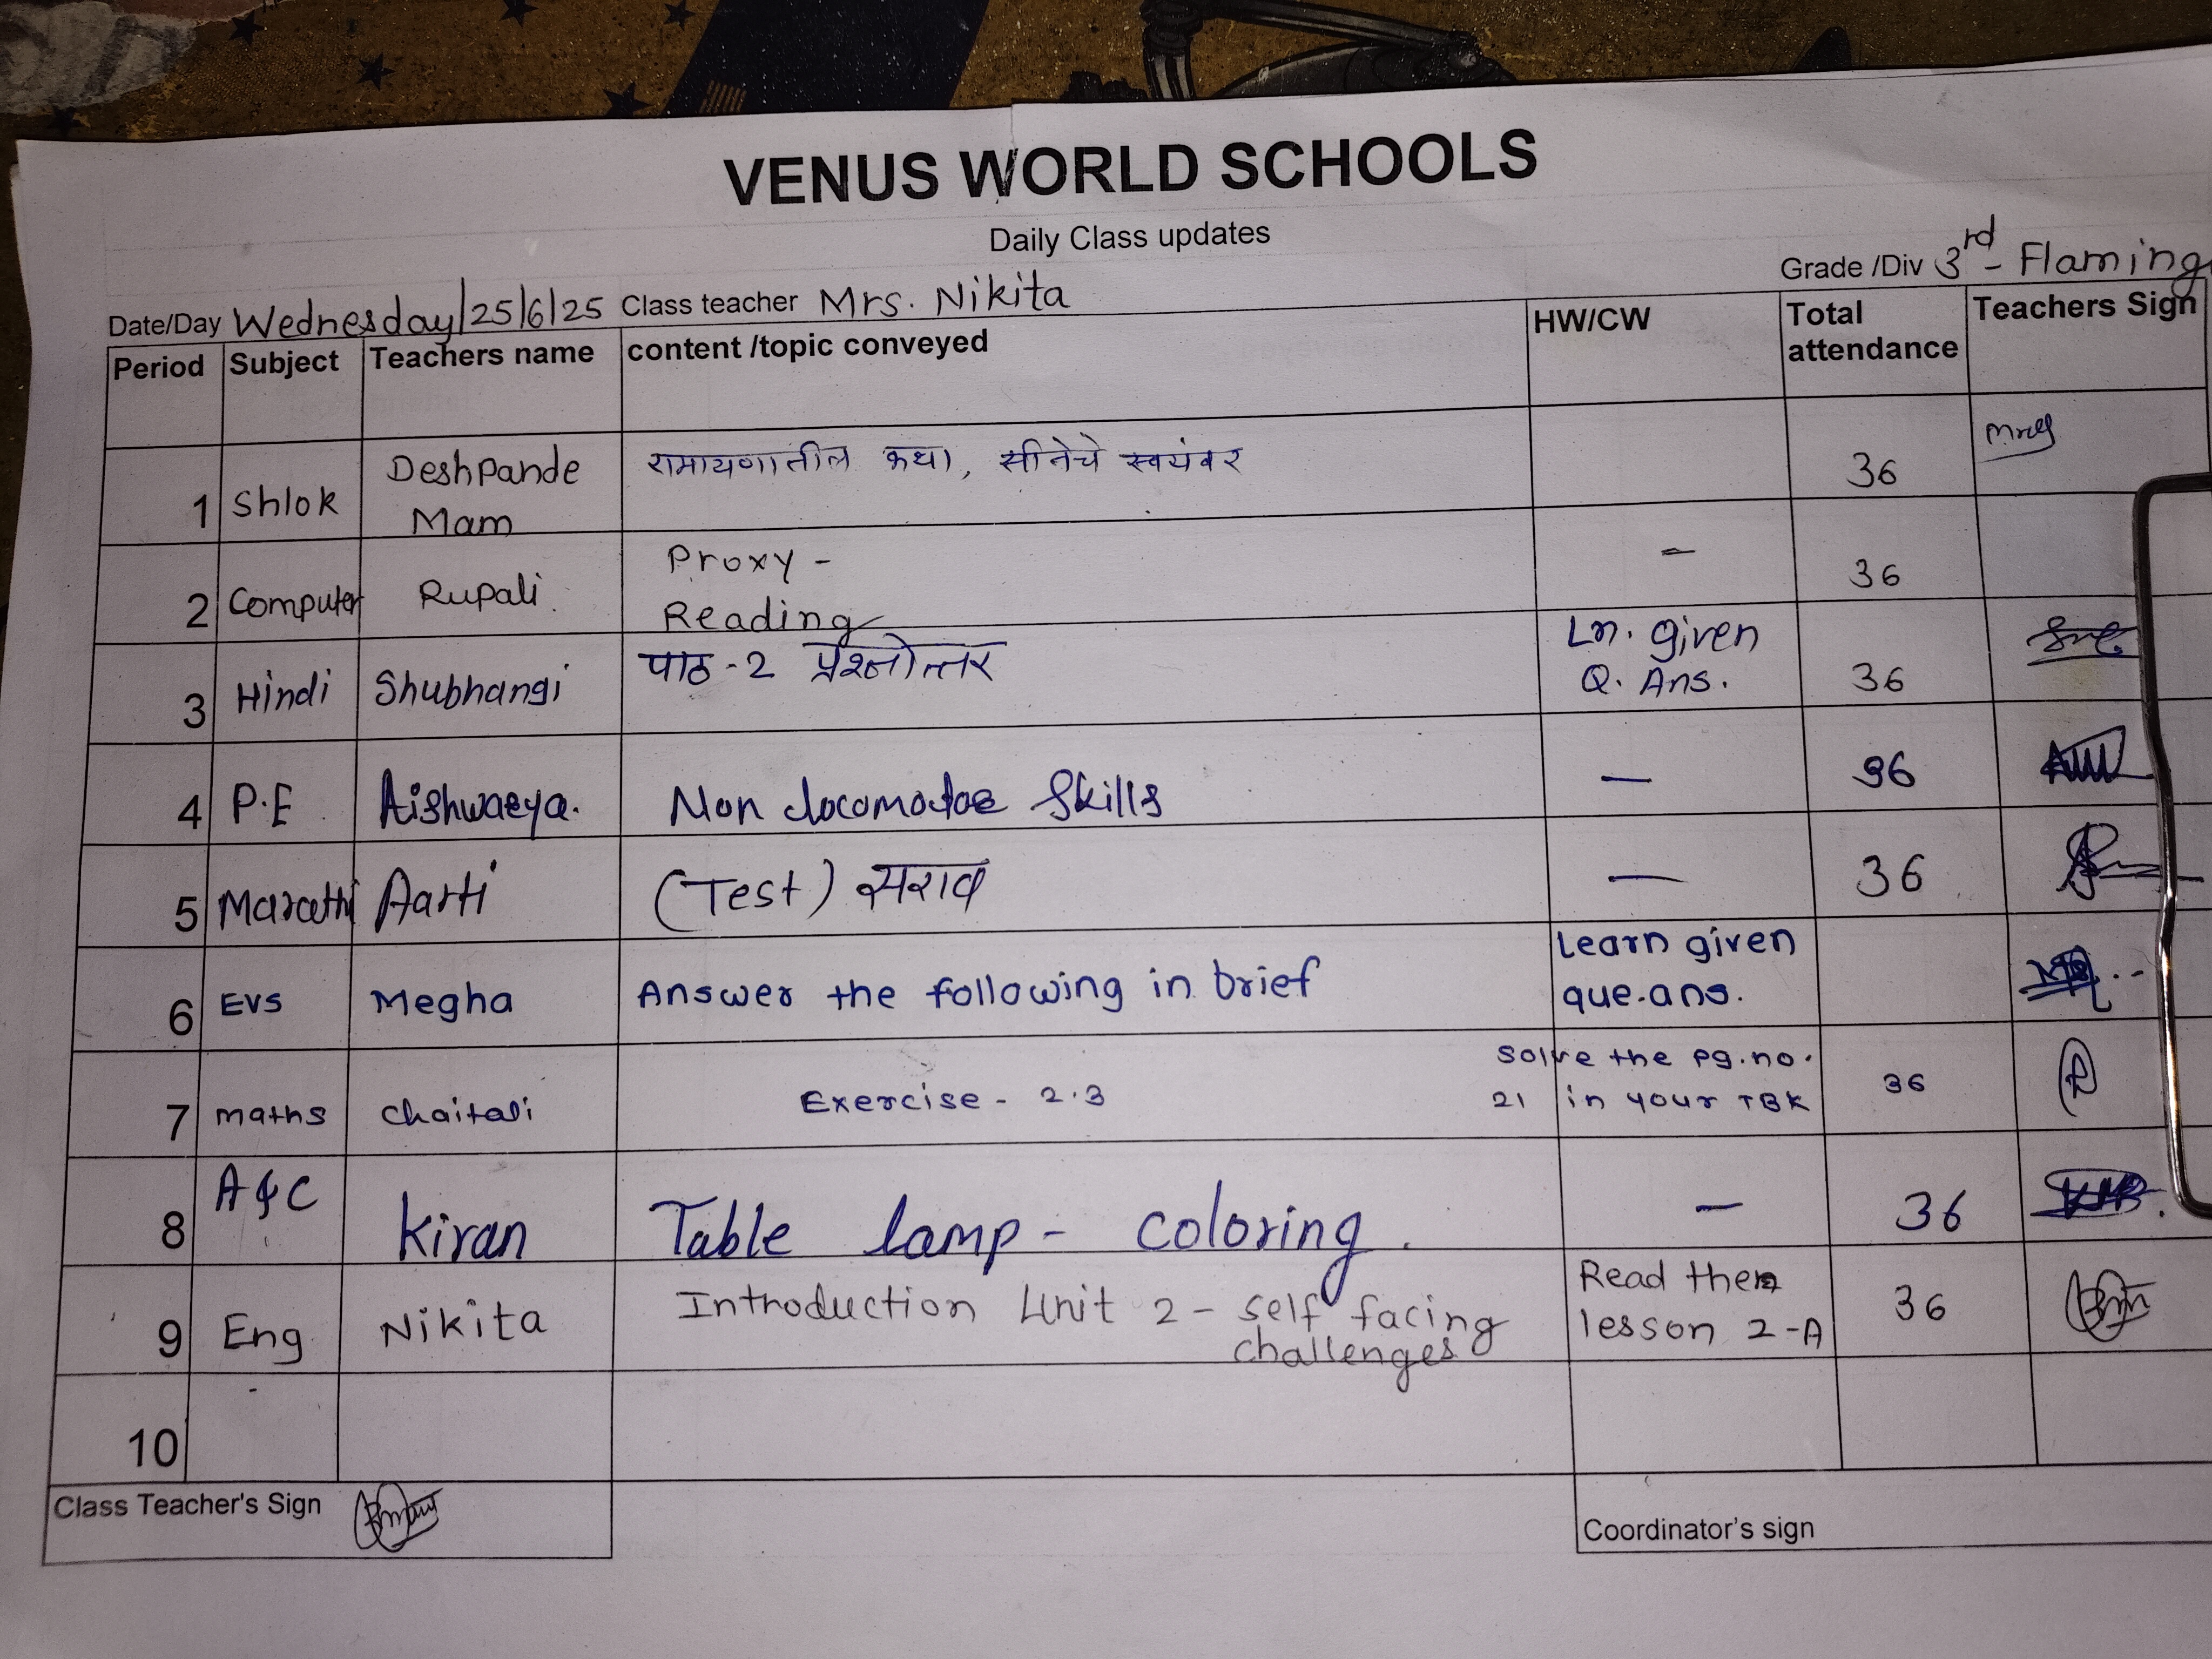 VENUS WORLD SCHOOLS
Daily Class updates
Grade /Div 3rd - Flaming
Date/Day Wednesday/25/6/25 Class teacher Mrs. Nikita
Period Subject Teachers name content /topic conveyed HW/CW Total attendance Teachers Sign
1 Shlok Deshpande Mam रामायणातील कथा, सीतेचे स्वयंवर 36
2 Computer Rupali Proxy - Reading - 36
3 Hindi Shubhangi पाठ-2 प्रश्नोत्तर Ln. given Q. Ans. 36
4 P.E Aishwarya. Non locomotor Skills - 36
5 Marathi Aarti (Test) सराव - 36
6 EVS Megha Answer the following in brief Learn given que.ans.
7 maths Chaitali Exercise - 2.3 Solve the pg.no. 21 in your TBK 36
8 A&C Kiran Table lamp - coloring. - 36
9 Eng Nikita Introduction Unit 2 - self facing challenges Read the lesson 2-A 36
10
Class Teacher's Sign
Coordinator's sign